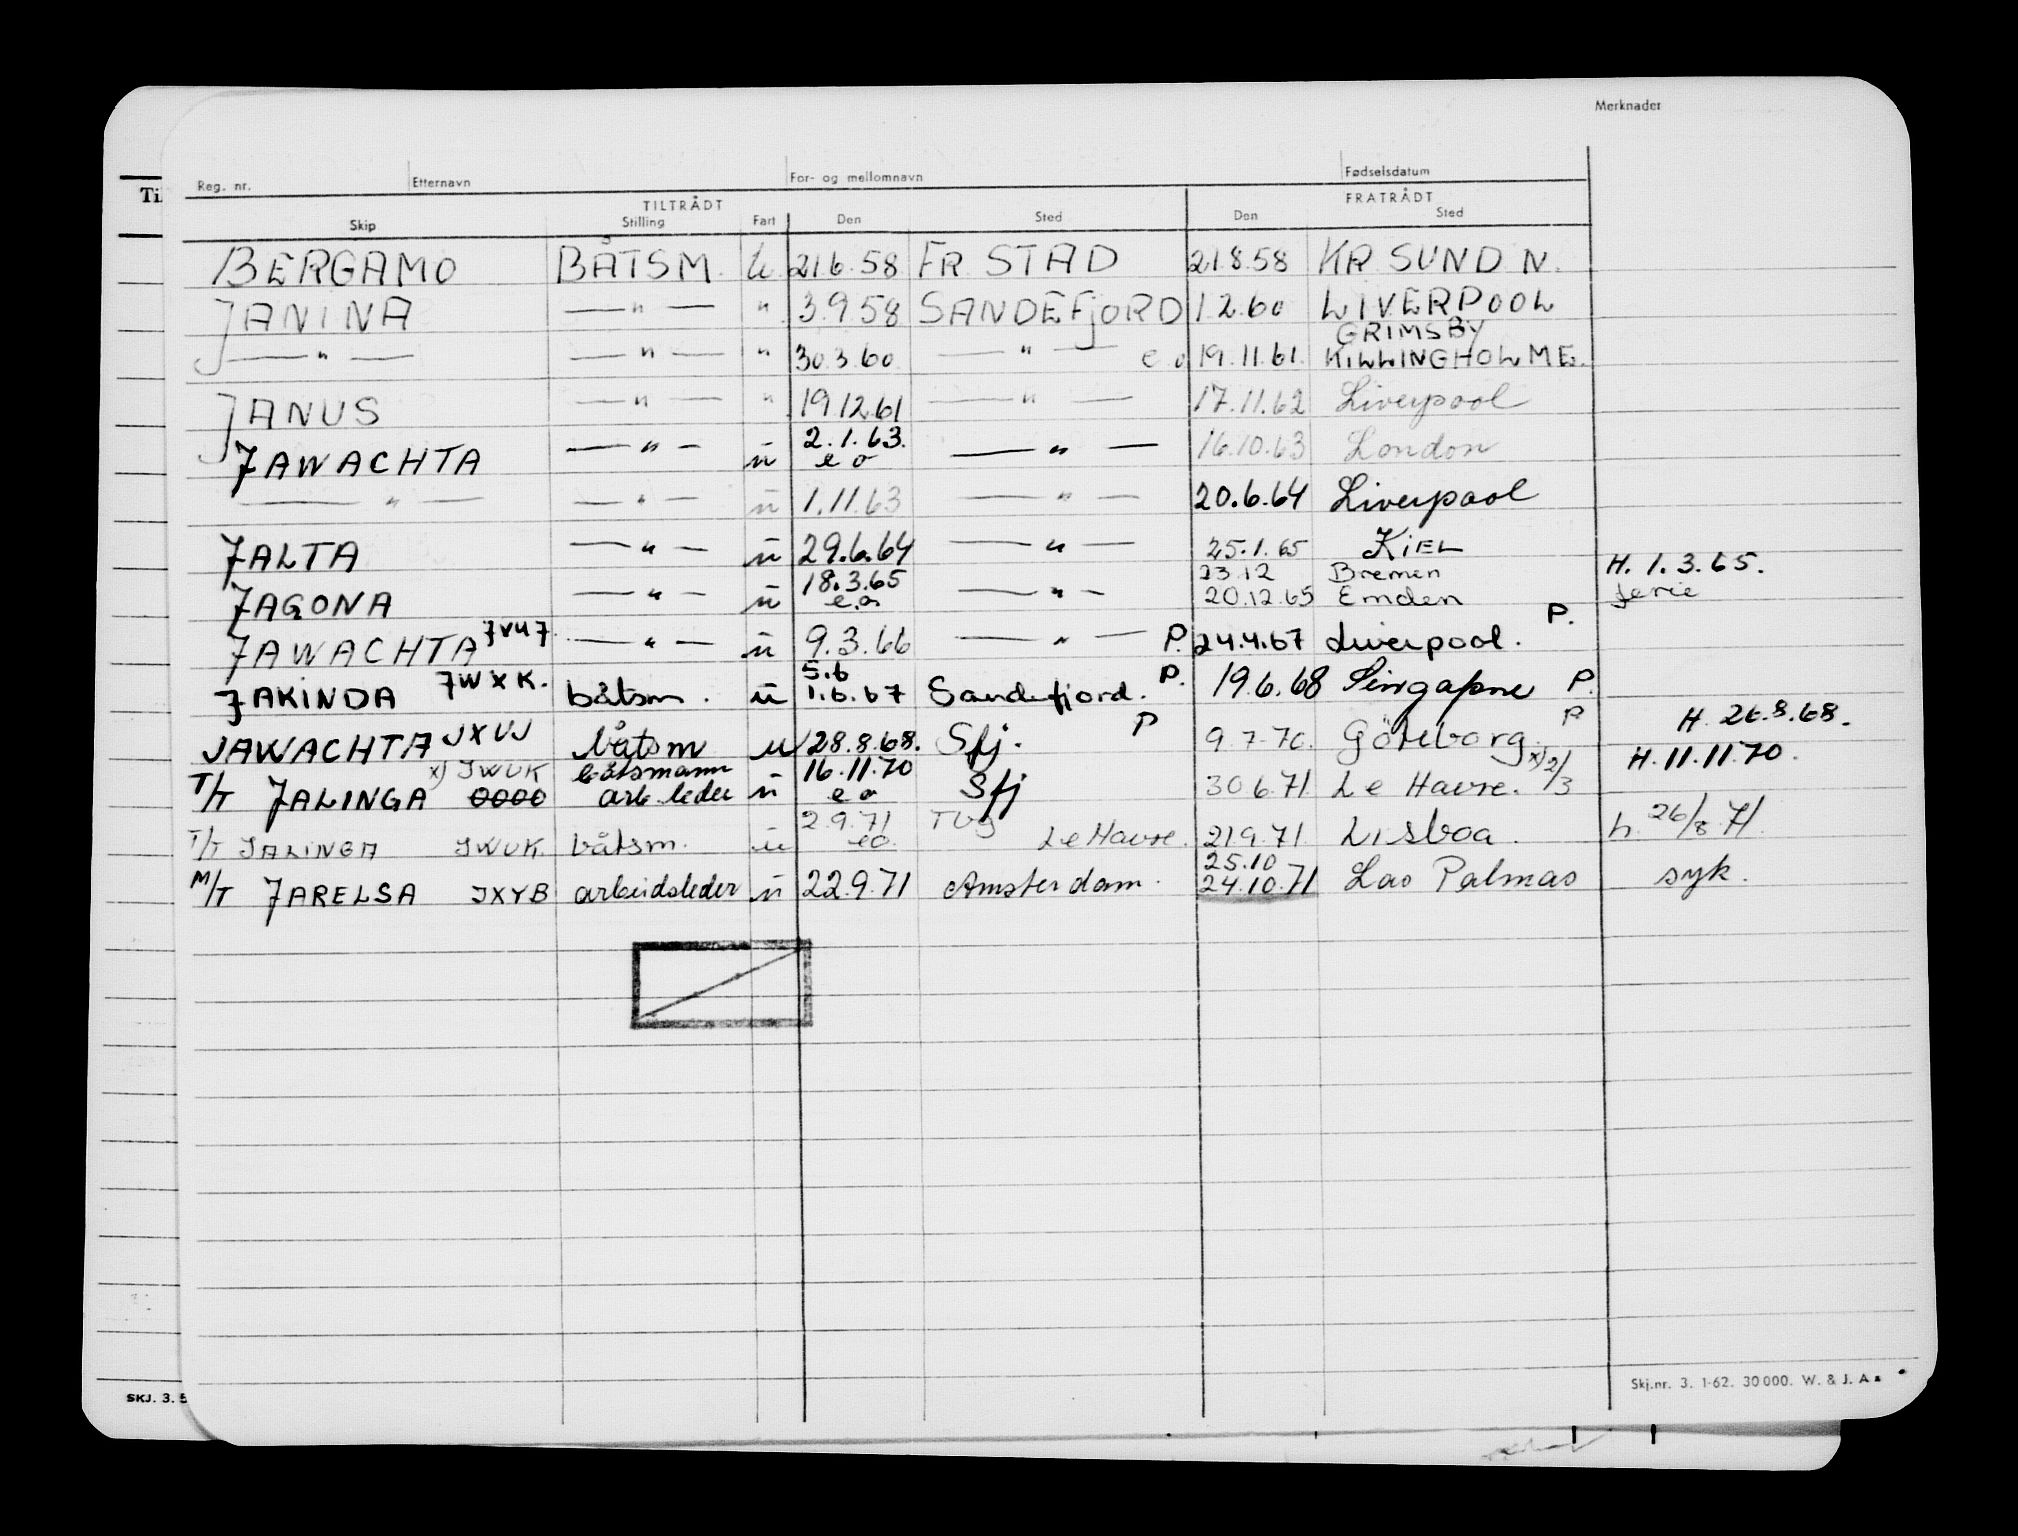 Merknader
Reg. nr. Etternavn For- og mellomnavn Fødselsdatum
Til
TILTRÅDT FRATRÅDT
Skip Stilling Fart Den Sted Den Sted
BERGAMO BÅTSM. u. 21.6.58 FR. STAD 21.8.58 KR. SUND N.
JANINA — " — " 3.9.58 SANDEFJORD 1.2.60 LIVERPOOL
GRIMSBY
— " — — " — " 30.3.60. — " — e o 19.11.61. KILLINGHOLME.
JANUS — " — " 19.12.61 — " — 17.11.62 Liverpool
2.1.63.
JAWACHTA — " — u e o — " — 16.10.63 London
— " — — " — u 1.11.63 — " — 20.6.64 Liverpool
JALTA — " — u 29.6.64 — " — 25.1.65 KIEL
18.3.65 23.12 Bremen H. 1.3.65.
JAGONA — " — u e.o. — " — 20.12.65 Emden ferie
JAWACHTA JVU7 — " — u 9.3.66 — " — P. 24.4.67 Liverpool. P.
5.6
JAKINDA JWXK. båtsm. u 1.6.67 Sandefjord. P. 19.6.68 Singapore P.
H. 26.8.68.
JAWACHTA JXVJ båtsm u 28.8.68. Sfj. P 9.7.70. Göteborg P
x) JWUK båtsmann 16.11.70 x) 2/3 H. 11.11.70.
T/T JALINGA 0000 arb.leder u e o Sfj 30.6.71. Le Havre.
2.9.71 Tbg h. 26/8 71.
T/T JALINGA JWUK båtsm. u eo. Le Havre. 21.9.71. Lisboa.
25.10
M/T JARELSA JXYB arbeidsleder u 22.9.71 Amsterdam. 24.10.71 Las Palmas syk.
Skj.nr. 3. 1-62. 30 000. W. & J. A
SKJ. 3. 5